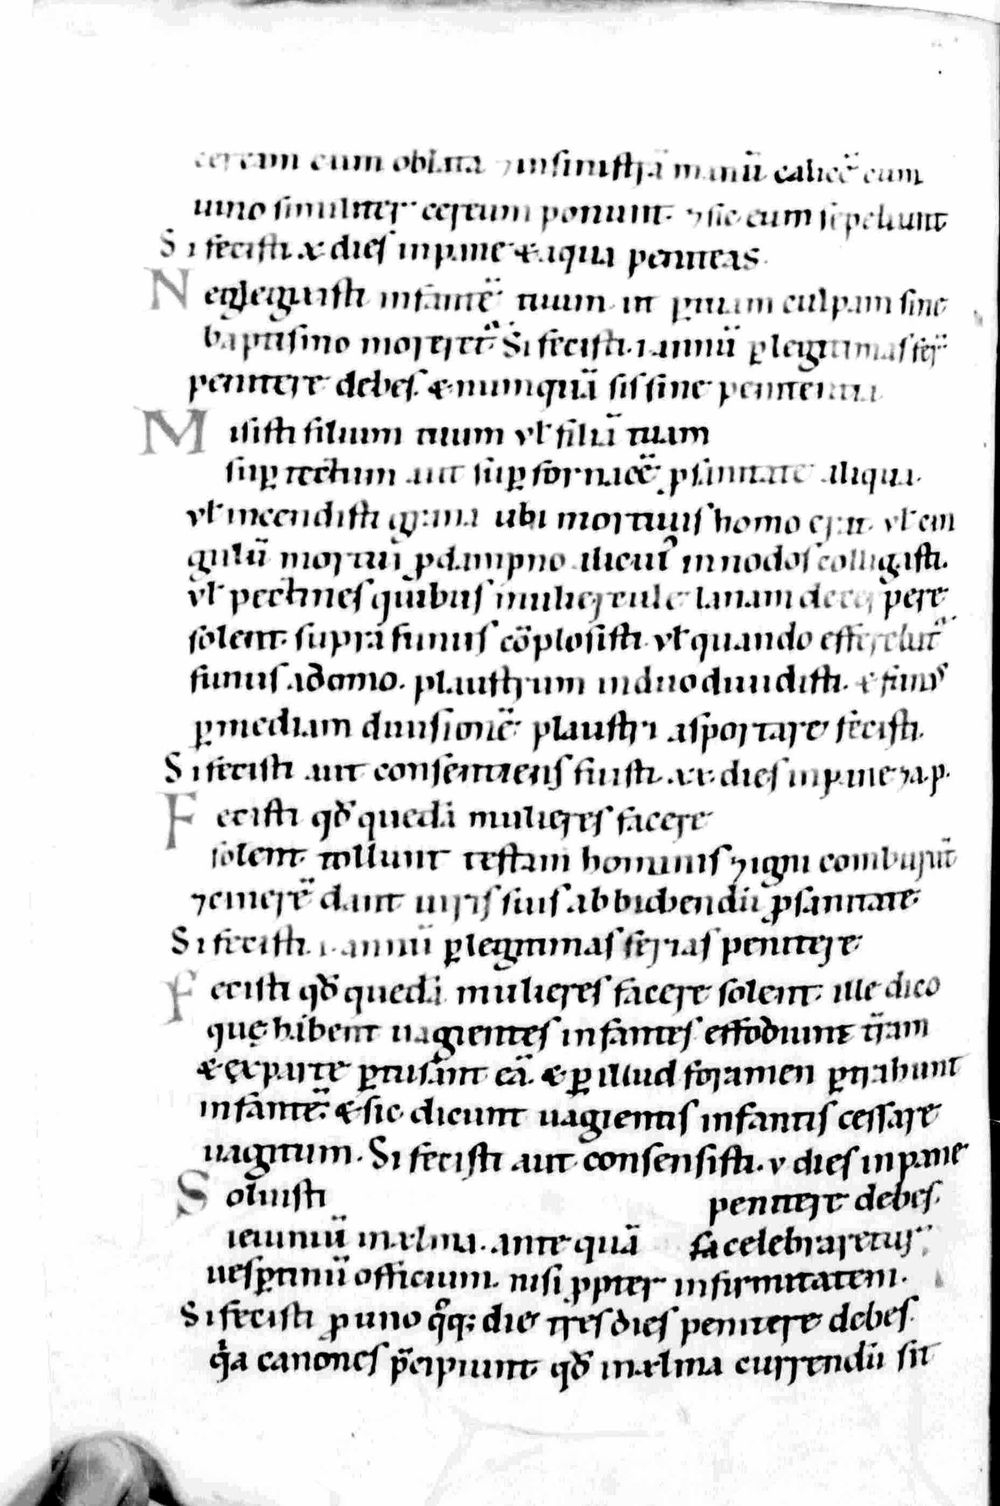 ceream cum oblata ⁊ insinistrā manū calicē cum
uino similiter cereum ponunt. ⁊ sic eum sepeliunt
Si fecisti. x dies inpane & aqua peniteas.
Neglegisti infantē tuum. ut ꝑ tuam culpam sine
baptismo moreret᷑. Si fecisti. ı. annū ꝑ legitimas fer̄
penitere debes. & numquā sis sine penitentia.
Misisti filium tuum ul̛ filiā tuam
sup̱ tectum aut sup̱ fornacē ꝓ sanitate aliqua.
ul̛ incendisti grana ubi mortuus homo erat. ul̛ cin
gulū mortui ꝓ dampno alicui᷒ innodos colligisti.
ul̛ pectines quibus muliercule lanam decerpere
solent. supra funus cōplosisti. ul̛ quando efferebat᷑
funus adomo. plaustrum induo diuidisti. & fun᷒
ꝑ mediam diuisionē plaustri asportare fecisti.
Si fecisti aut consentiens fuisti. xx. dies inpane ⁊ a.p.
Fecisti qđ quedā mulieres facere
solent. tollunt testam hominis ⁊ igni comburūt
⁊ cinerē dant uiris suis ab bibendū ꝓ sanitate.
Si fecisti. ı. annū ꝑ legitimas ferias penitere
Fecisti qđ quedā mulieres facere solent. ille dico
quę habent uagientes infantes effodiunt t̄ram
& ex parte ꝑtusant eā. & ꝑ illud foramen ꝑtrahunt
infantē. & sic dicunt uagientis infantis cessare
uagitum. Si fecisti aut consensisti. v dies inpane
Soluisti penitere debes.
ieiuniū inxlma. ante quā celebraretur
uesꝑtinū officium. nisi ꝓpter infirmitatem.
Si fecisti ꝓ uno qͦq; die tres dies penitere debes.
qͣa canones p̄cipiunt qđ inxlma currendū sit